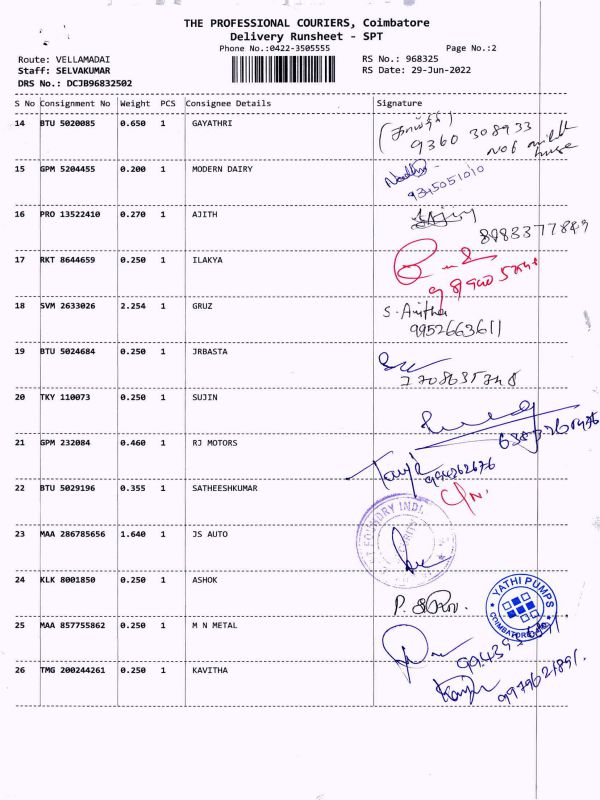 THE PROFESSIONAL COURIERS, Coimbatore
Delivery Runsheet - SPT
Phone No.:0422-3505555 Page No.:2
Route: VELLAMADAI RS No.: 968325
Staff: SELVAKUMAR RS Date: 29-Jun-2022
DRS No.: DCJB96832502
S No Consignment No Weight PCS Consignee Details Signature
14 BTU 5020085 0.650 1 GAYATHRI
9360 308933
15 GPM 5204455 0.200 1 MODERN DAIRY
9345051010
16 PRO 13522410 0.270 1 AJITH
8983377849
17 RKT 8644659 0.250 1 ILAKYA
18 SVM 2633026 2.254 1 GRUZ S. Anitha
9952663611
19 BTU 5024684 0.250 1 JRBASTA
20 TKY 110073 0.250 1 SUJIN
21 GPM 232084 0.460 1 RJ MOTORS
22 BTU 5029196 0.355 1 SATHEESHKUMAR
FOUNDRY INDI
23 MAA 286785656 1.640 1 JS AUTO
24 KLK 8001850 0.250 1 ASHOK
YATHI PUMPS
COIMBATORE
25 MAA 857755862 0.250 1 M N METAL
26 TMG 200244261 0.250 1 KAVITHA
9979621891.